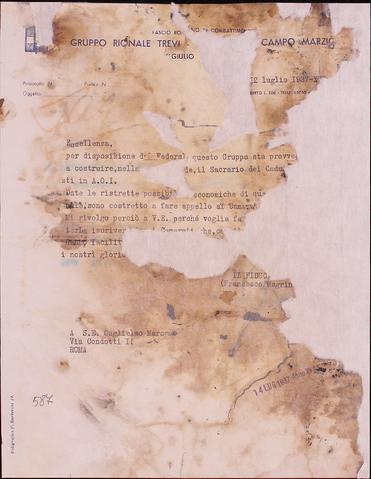 FASCIO RO NO DI COMBATTIM
GRUPPO RIONALE TREVI CAMPO MARZIO
"GIULIO
Protocollo N. Pratica N.
Oggetto:
12 luglio 1937-X
Eccellenza,
per disposizione del Federal questo Gruppo sta provve
a costruire, nella de, il Sacrario dei Cadu
ti in A.O.I.
Date le ristrette possibi economiche di qu
sono costretto a fare appello ai Camera
Mi rivolgo perciò a V.E. perché voglia fa
iscriver Camerati che,
facilit
i nostri glorio
IL FIDUC
(Francesco Magrin
A S.E. Guglielmo Marcon
Via Condotti 11
ROMA
587
14 LUG 1937